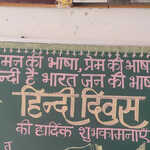 मन की भाषा, प्रेम की भाषा
हिन्दी है भारत जन की भाषा
हिन्दी दिवस
की हार्दिक शुभकामनाएँ